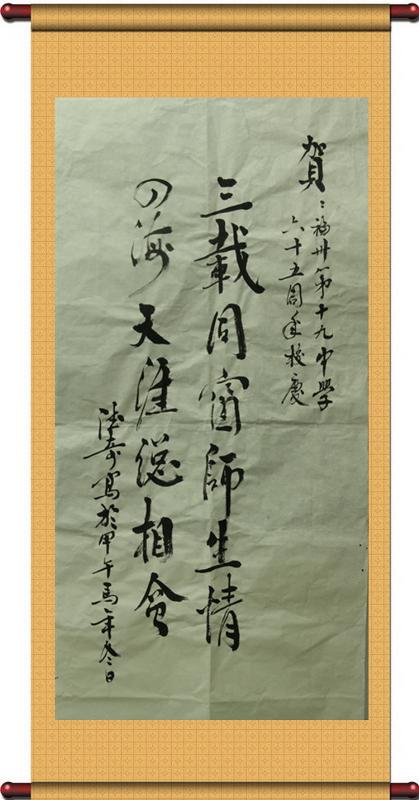 賀：福州第十九中學
六十五周年校慶
三載同窗師生情
四海天涯總相會
寫於甲午馬年冬日